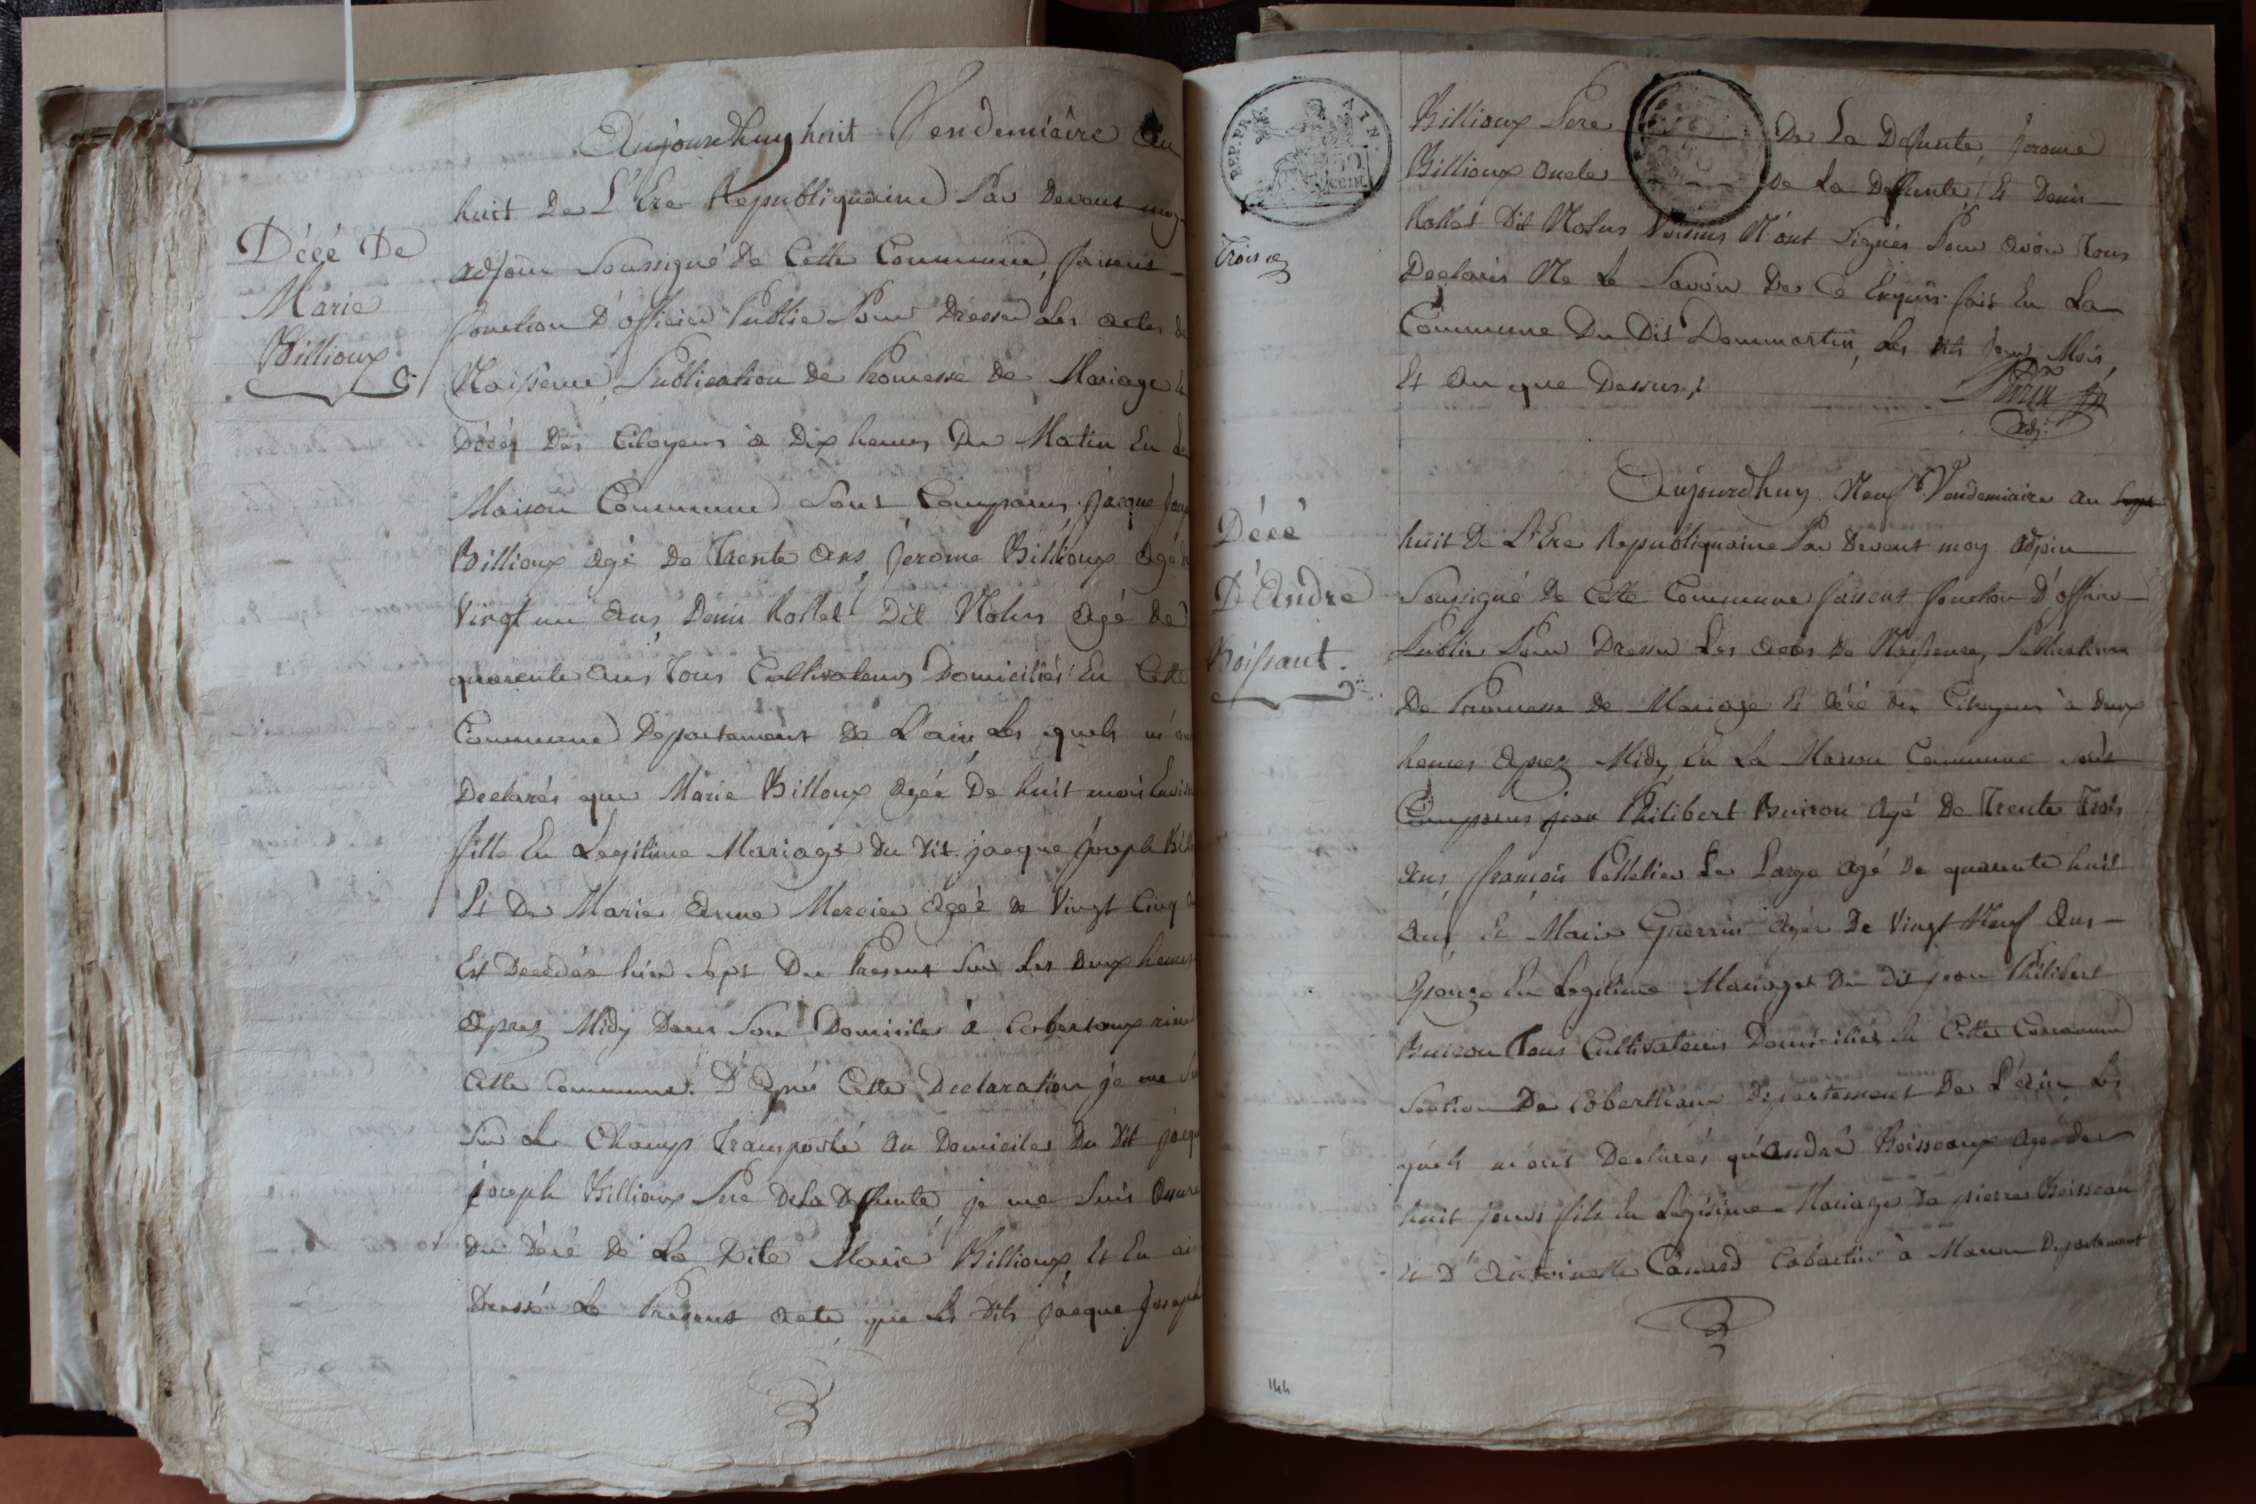 Aujourdhuy huit Vendemiaire an
huit De L'Ere Republiquaine Par Devant moy
adjoin Soussigné de Cette Commune, faisent
fonction D'officier Public Pour Dresser Les actes de
Naissence, Publication de Promesse de Mariage et
Décés Des Citoyens à Dix heures Du Matin En La
Maison Commune Sont Comparus jacque joseph
Billioux agé De Trente ans, jerome Billioux agé de
Vingt un ans, Denis Rollet Dit Nolus agé de
quarente ans Tous Cultivateurs Domiciliés En Cette
Commune Departement de L'ain Les quels m'ont
Declarés que Marie Billoux agée De huit mois Environ
fille En Legitime Mariage du Dit jacque joseph
Et De Marie Anne Mercier agée de Vingt Cinq
Est Decedée hier Sept Du Present Sur Les deux heures
aprez Midy Dans Son Domicile à
Cette Commune. D'aprés Cette Declaration je me Suis
Sur Le Champ Transporté au Domicile Du Dit jacque
joseph Billioux Pere De La Defunte, je me Suis assuré
Du Décé de La Dite Marie Billioux Et En ai
Dressé Le Present acte que Les Dits jacque joseph
Décé De
Marie
Billioux
REP. FRA. AIN.
50
CENT.
Billioux Pere De La Defunte, jerome
Billioux oncle de La Defunte, Et Denis
Rollet Dit Nolus Voisins N'ont Signés Pour avoir Tous
Declarés Ne Le Savoir De Ce Enquis fait En La
Commune Du Dit Dommartin, Les dits jour, Mois,
Et an que Dessus,
adj.
Décé
D'Andre
Boissaut.
Aujourdhuy Neuf Vendemiaire an
huit De L'Ere Republiquaine Par Devant moy adjoin
Soussigné de Cette Commune faisent fonction D'officier
Public Pour Dresser Les actes de Naissence, Publication
De Promesse de Mariage Et décé des Citoyens à deux
heures aprez Midy En La Maison Commune sont
Comparus jean Philibert Buiron agé De Trente Trois
ans, françois Pelletier Le Large agé de quarente huit
ans Et Marie Guerrin agée De Vingt Neuf ans
Epouze En Legitime Mariage Du dit jean Philibert
Buiron Tous Cultivateurs Domiciliés En Cette Commune
Section De Cobertheaux Departement De L'ain Les
quels m'ont Declarés qu'andré Boisseaux agé de
huit jours fils En Legitime Mariage De pierre Boisseau
Et D'Antoinette Canard Cabartier à Macon Departement
144